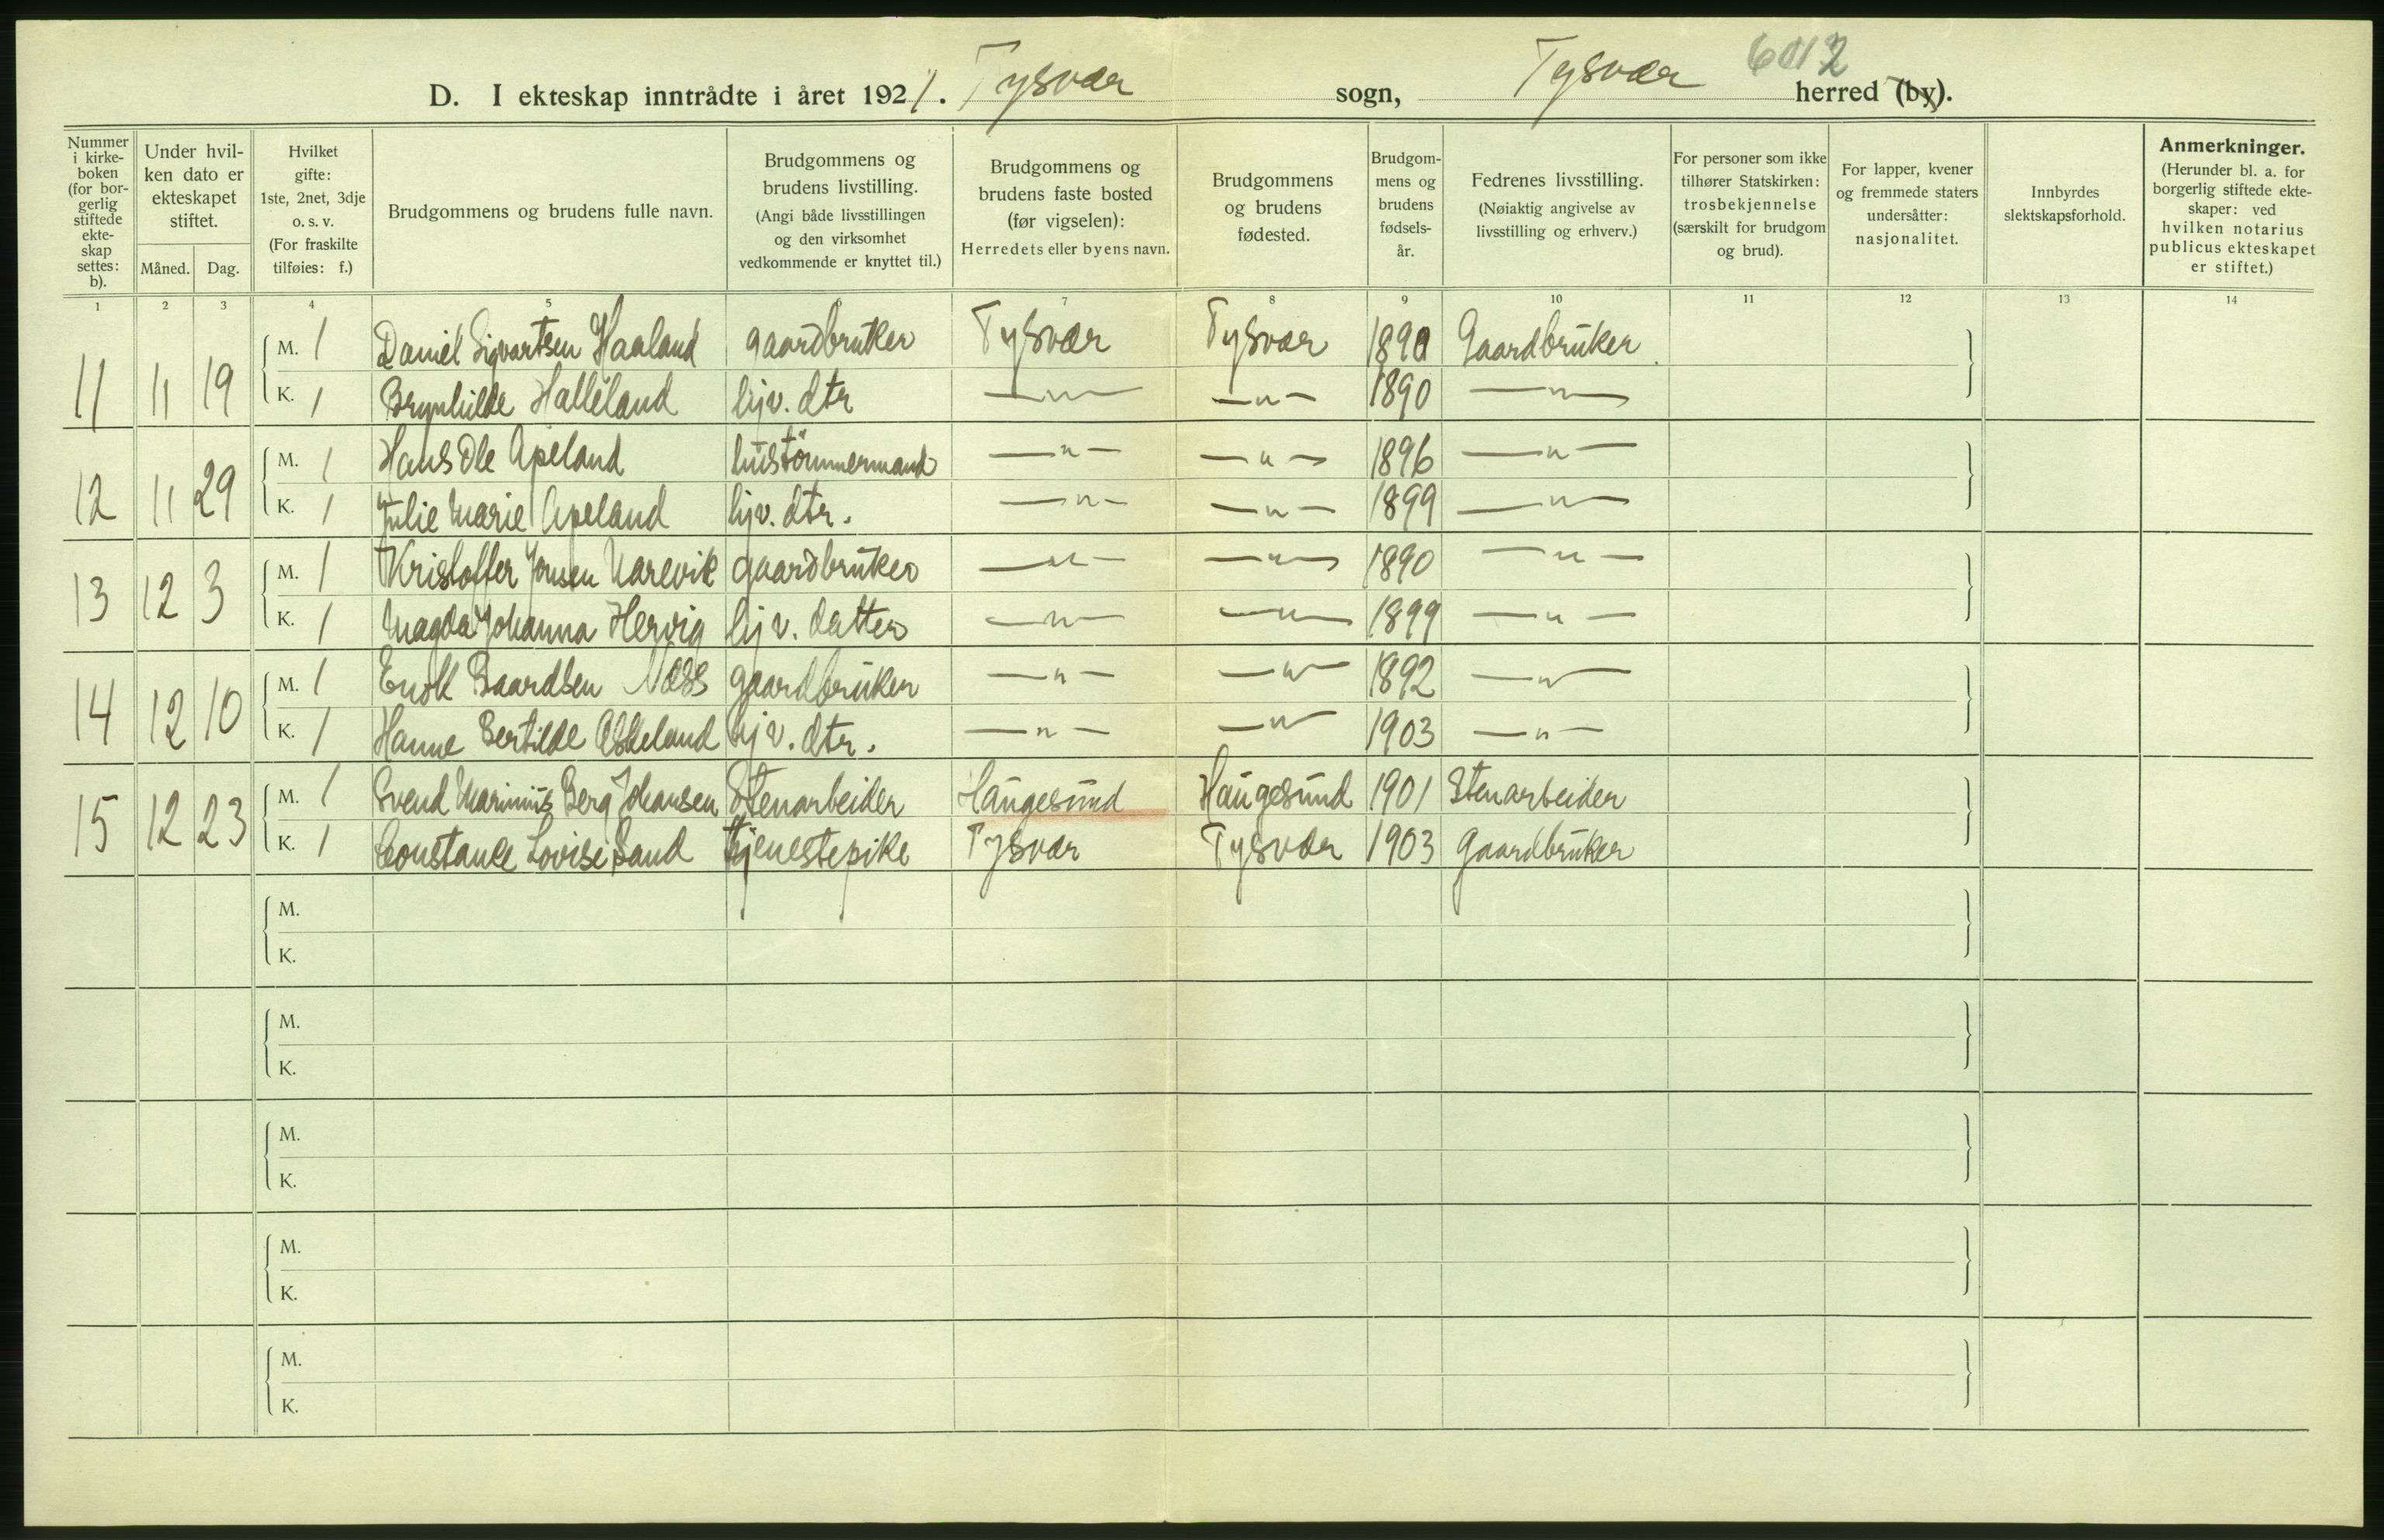 6012
D. I ekteskap inntrådte i året 1921. Tysvær sogn, Tysvær herred (by).
Nummer i kirkeboken (for borgerlig stiftede ekteskap settes: b).
Under hvilken dato er ekteskapet stiftet.
Måned. Dag.
Hvilket gifte: 1ste, 2net, 3dje o. s. v. (For fraskilte tilføies: f.)
Brudgommens og brudens fulle navn.
Brudgommens og brudens livstilling. (Angi både livsstillingen og den virksomhet vedkommende er knyttet til.)
Brudgommens og brudens faste bosted (før vigselen): Herredets eller byens navn.
Brudgommens og brudens fødested.
Brudgommens og brudens fødselsår.
Fedrenes livsstilling. (Nøiaktig angivelse av livsstilling og erhverv.)
For personer som ikke tilhører Statskirken: trosbekjennelse (særskilt for brudgom og brud).
For lapper, kvener og fremmede staters undersåtter: nasjonalitet.
Innbyrdes slektskapsforhold.
Anmerkninger. (Herunder bl. a. for borgerlig stiftede ekteskaper: ved hvilken notarius publicus ekteskapet er stiftet.)
1 2 3 4 5 6 7 8 9 10 11 12 13 14
11 11 19 M. 1 Daniel Sigvartsen Haaland gaardbruker Tysvær Tysvær 1890 Gaardbruker
K. 1 Brynhilde Halleland hjv. dtr —"— —"— 1890 —"—
12 11 29 M. 1 Hans Ole Apeland hustömmermand —"— —"— 1896 —"—
K. 1 Julie Marie Apeland hjv. dtr. —"— —"— 1899 —"—
13 12 3 M. 1 Kristoffer Jonsen Narevik gaardbruker —"— —"— 1890 —"—
K. 1 Magda Johanna Hervig hjv. datter —"— —"— 1899 —"—
14 12 10 M. 1 Enok Baardsen Næss gaardbruker —"— —"— 1892 —"—
K. 1 Hanne Bertilde Askeland hjv. dtr. —"— —"— 1903 —"—
15 12 23 M. 1 Svend Marinius Berg Johansen Stenarbeider Haugesund Haugesund 1901 Stenarbeider
K. 1 Constance Lovise Sand tjenestepike Tysvær Tysvær 1903 Gaardbruker
M.
K.
M.
K.
M.
K.
M.
K.
M.
K.